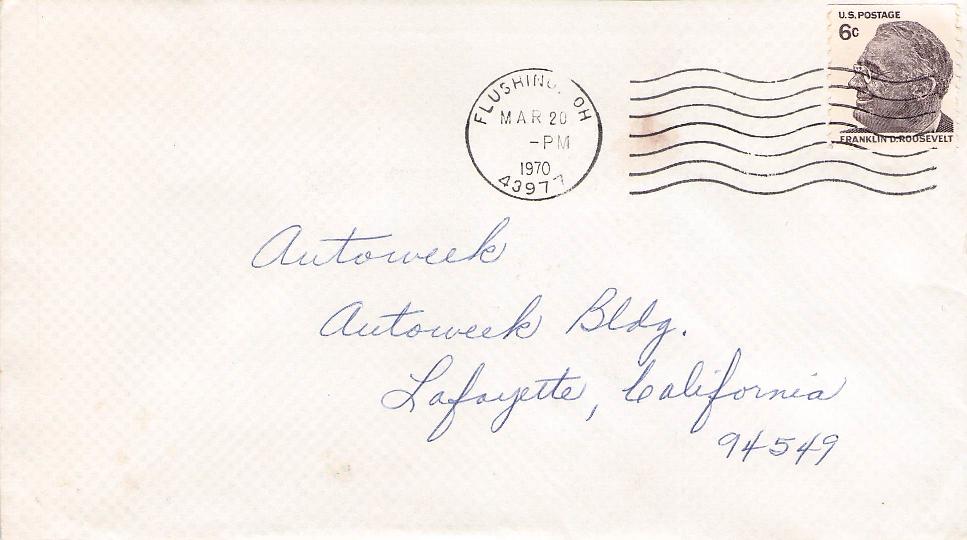 U.S. POSTAGE
6c
FRANKLIN D. ROOSEVELT
FLUSHING, OH
MAR 20
-PM
1970
43977
Autoweek
Autoweek Bldg.
Lafayette, California
94549